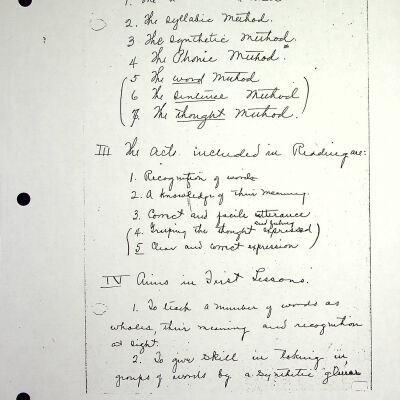 1. The
2. The Syllabic Method.
3 The Synthetic Method.
4 The Phonic Method.
5 The word Method
6 The sentence Method
7. The thought Method.
III The acts included in Reading are:
1. Recognition of words
2. A knowledge of their meaning.
3. Correct and facile utterance
and feeling
4. Grasping the thought expressed
5 Clear and correct expression
IV Aims in First Lessons.
1. To teach a number of words as
wholes, their meaning and recognition
at sight.
2. To give skill in taking in
groups of words by a synthetic glance